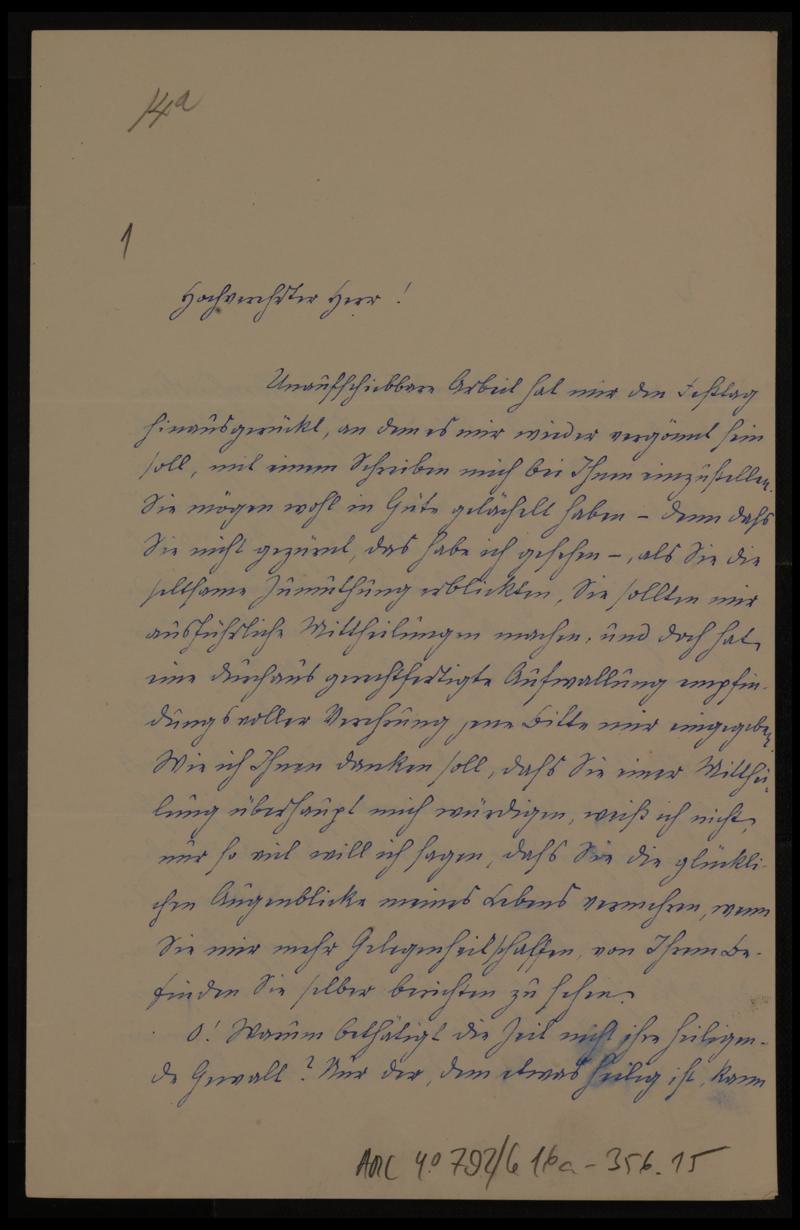 14a
1
Hochverehrter Herr!
Unaufschiebbare Arbeit hat mir den Festtag
hinausgerückt, an dem es mir wieder vergönnt sein
soll, mit einem Schreiben mich bei Ihnen einzustellen.
Sie mögen wohl in Güte gelächelt haben – denn daſs
Sie nicht gezürnt, das habe ich gesehen –, als Sie die
seltsame Zumuthung erblickten, Sie sollten mir
ausführliche Mittheilungen machen, und doch hat
eine durchaus gerechtfertigte Aufwallung empfin-
dungsvoller Verehrung jene Bitte mir eingegeben.
Wie ich Ihnen danken soll, daſs Sie einer Mitthei-
lung überhaupt mich würdigen, weiß ich nicht,
nur so viel will ich sagen, daſs Sie die glückli-
chen Augenblicke meines Lebens vermehren, wenn
Sie mir mehr Gelegenheit schaffen, von Ihrem Be-
finden Sie selber berichten zu sehen.
O! Warum bethätigt die Zeit nicht ihre heiligen-
de Gewalt? Nur der, dem etwas heilig ist, kann
ARC 4° 792/6 16a - 356.15